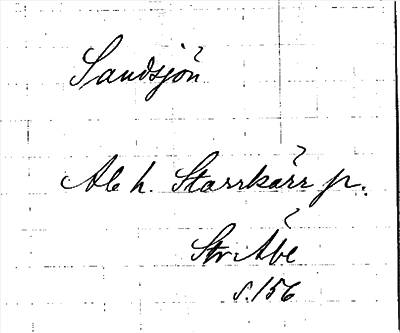 Sandsjön
Ale h. Starrkärr jr.
Str. Åbe
s. 156